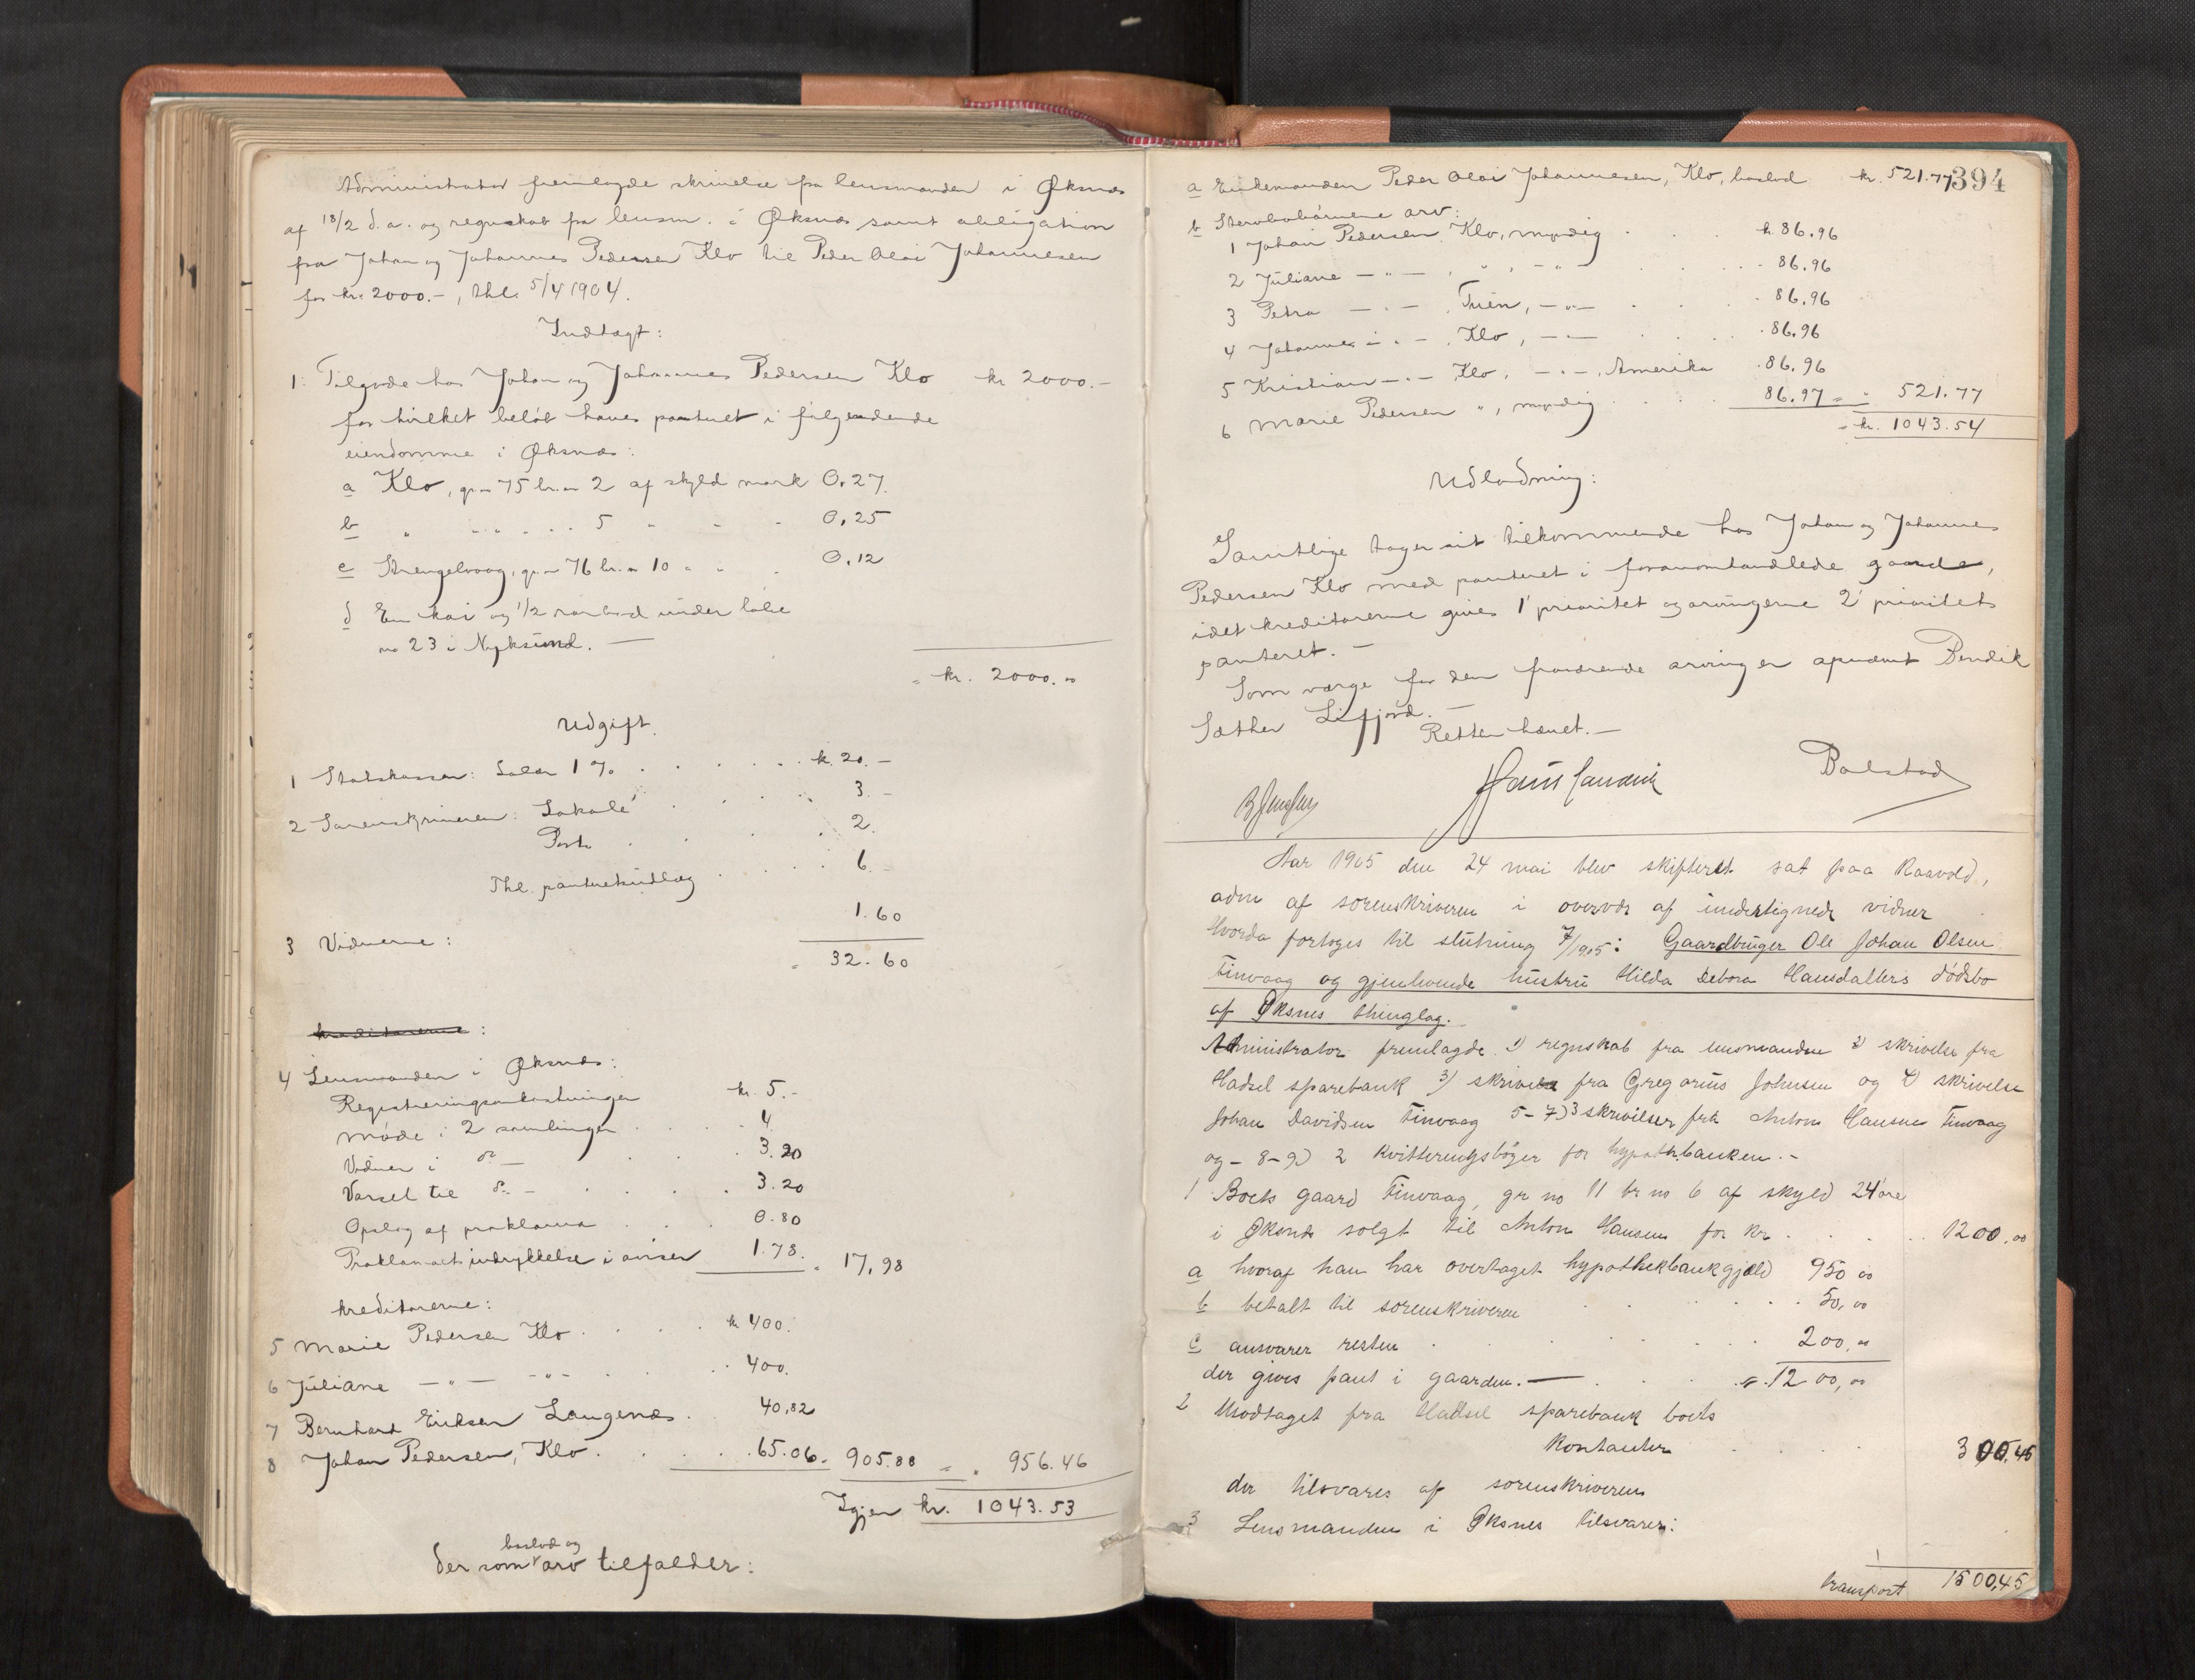 Administrator fremlagde skrivelse fra lensmanden i Øksnæs
af 18/2 d.a. og regnskab fra lensm. i Øksnæs samt obligation
fra Johan og Johannes Pedersen Klo til Peder Olai Johannesen
for kr. 2000.-, thl. 5/4 1904.
Indtægt:
1. Tilgode hos Johan og Johannes Pedersen Klo kr 2000.-
for hvilket beløb haves panteret i følgendende
eiendomme i Øksnæs:
a Klo, g.no 75 br.no 2 af skyld mark 0.27.
b " " " " " 5 " - - 0,25
c Strengelvaag, g.no 76 br.no 10 " " - 0,12
d En kai og 1/2 rorbod under løbe
no 23 i Nyksund. —
" kr. 2000.00
Udgift.
1 Statskassen: Salær 1 % . . . . . . k. 20.-
2 Sorenskriveren: Lokale . . . . 3.-
Porto . . . . 2.
Thl. panteretsudlæg . . . . 6.-
3 Vidnerne: 1.60
" 32.60
kreditorerne :
4 Lensmanden i Øksnæs:
Registreringsomkostninger kr. 5.-
Møde i 2 samlinger . . . . 4
Vidner i do - . . . 3.20
Varsel til do - . . . . 3.20
Opslag af proklama . . . 0.80
Proklamaets indrykkelse i aviser 1.78. " 17,98
kreditorerne:
5 Marie Pedersen Klo . . . . kr 400.
6 Juliane -"- -"- . . . 400.
7 Bernhard Eriksen Langenæs . . 40,82
8 Johan Pedersen, Klo . . . . 65.06 " 905.88 " " 956.46
Igjen kr. 1043.53
boslod og
der som arv tilfalder:
394
a Enkemanden Peder Olai Johannesen, Klo, boslod kr. 521.77
b Stervbobørnene arv:
1 Johan Pedersen Klo, myndig . . . k. 86.96
2 Juliane -"- , " , -"- . . . 86.96
3 Petra -"- , Tuen, -"- . . . 86.96
4 Johannes -"- , Klo, -"- . . . 86.96
5 Kristian -"- , Klo, -"-, Amerika . 86.96
6 Marie Pedersen ", myndig . . . . 86.97 = " 521.77
" kr. 1043.54
Udlodning:
Samtlige tager sit tilkommende hos Johan og Johannes
Pedersen Klo med panteret i foranomhandlede gaarde,
idet kreditorerne gives 1' prioritet og arvingerne 2' prioritets
panteret. —
Som værge for den fraværende arving er opnævnt Bendik
Sæther Lifjord. —
Retten hævet. —
Bolstad
Aar 1905 den 24 mai blev skifteret sat paa Raavold,
adm af sorenskriveren i overvær af undertegnede vidner
Hvorda fortoges til slutning 7/1905: Gaardbruger Ole Johan Olsen
Finvaag og gjenlevende hustru Hilda Debora Hansdatters dødsbo
af Øksnes thinglag.
Administrator fremlagde 1) regnskab fra lensmanden 2) skrivelse fra
Hadsel sparebank 3) skrivelse fra Gregorius Johnsen og 4) skrivelse
Johan Davidsen Finvaag 5-7) 3 skrivelser fra Anton Hansen Finvaag
og - 8-9) 2 kvitteringsbøger for hypothbanken. -
1 Boets gaard Finvaag, gr no 11 br no 6 af skyld 24 øre
i Øksnes solgt til Anton Hansen for kr . . . . . 1200,00
a hvoraf han har overtaget hypothekbankgjæld 950 00
b betalt til sorenskriveren . . . . 50,00
c ansvarer resten . . . . 200,00
der gives pant i gaarden. — . . . 1200,00
2 Modtaget fra Hadsel sparebank boets
kontanter . . . . 300,45
der tilsvares af sorenskriveren
3 Lensmanden i Øksnes tilsvarer:
transport 1500,45